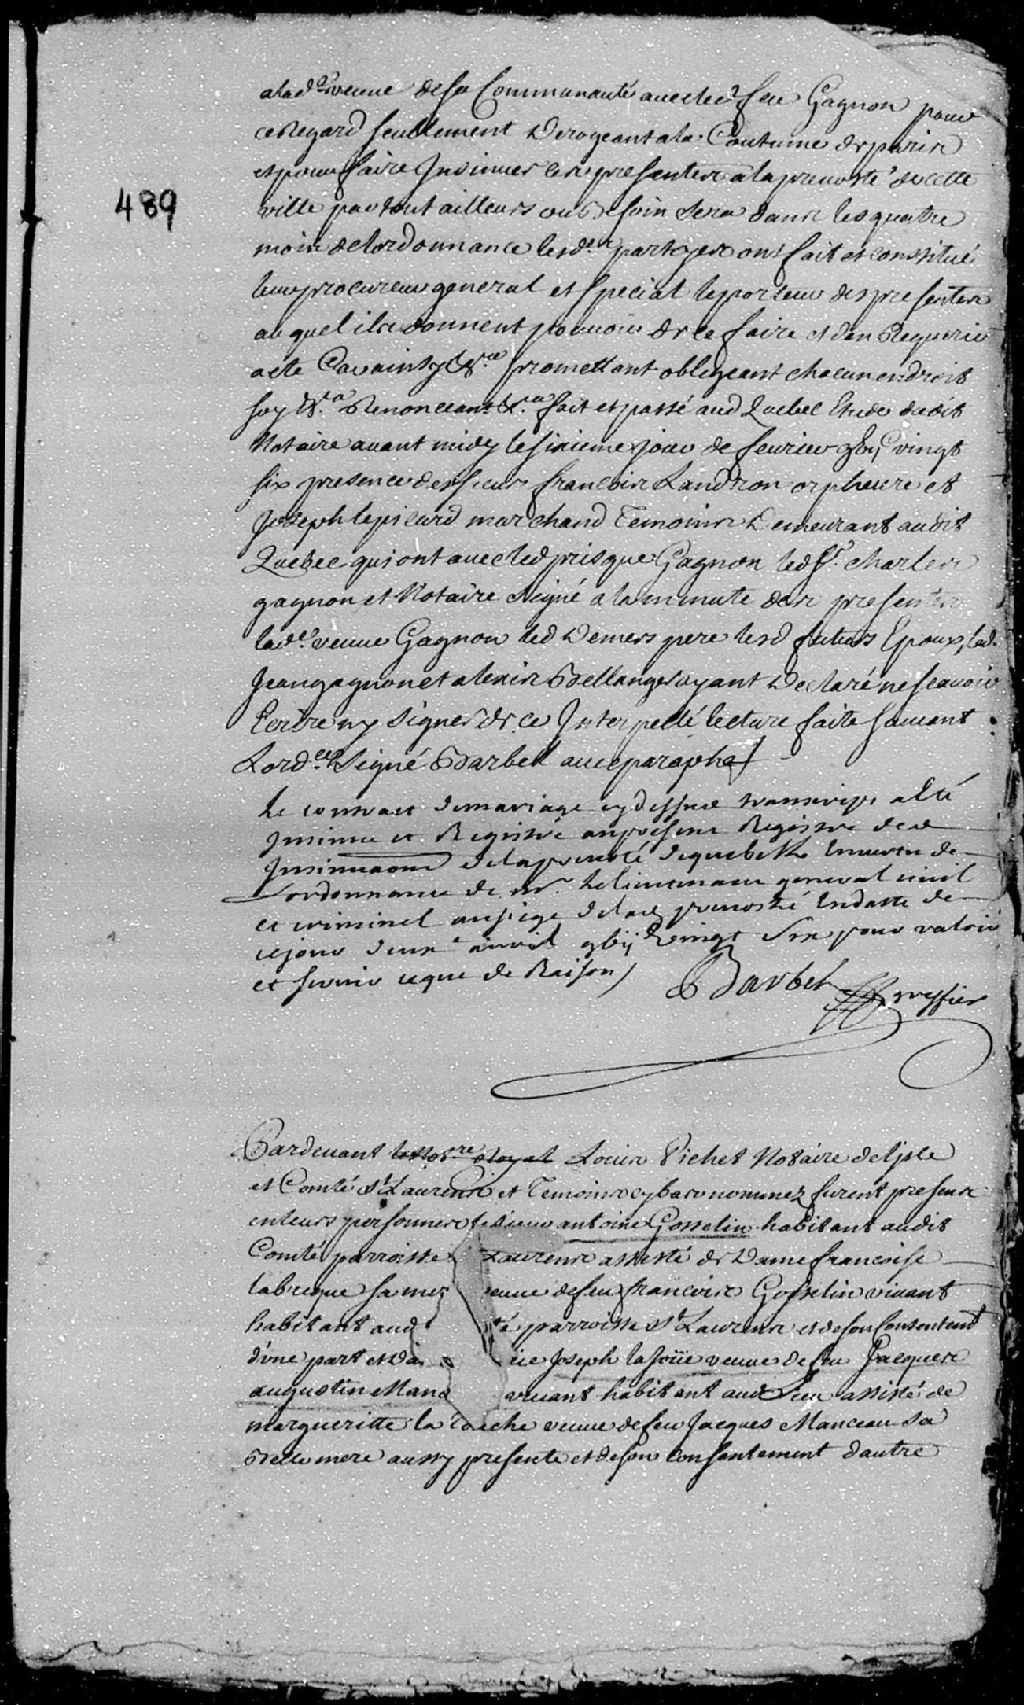 alad.e veuve de sa Communauté avec led.t feu Gagnon pour
ce Regard seullement Derogeant a la Coutume de paris
et pour faire Insinuer ces presentes a la prevosté de cette
489
ville partout ailleurs ou besoin sera dans les quatre
mois de lordonnance lesd.es partyes ont fait et constitué
leur procureur general et special le porteur des presentes
auquel ils donnent pouvoir de ce faire et den Requerir
acte Car ainsy &.ce promettant obligeant chacun endroit
soy &.a Renonceant &.a fait et passé aud Quebec Etude dudit
Notaire avant midy le sixieme jour de fevrier vingt
six presence des sieurs francois Landron orpheuvre et
Joseph lepicard marchand Temoins Demeurant audit
Quebec qui ont avec led prisque Gagnon led s.r charles
gagnon et Notaire signé a la minute des presentes
lad.e veuve Gagnon led Demers pere lesd futurs Epoux, led.
Jean gagnon et alexis Bellanger ayant Declaré ne scavoir
Ecrire ny signer de ce Interpellé lecture faite suivant
Lord.ce Signé Barbel avec paraphe
Le contract de mariage cy dessus transcript a eté
Insinué et Registré au present Registre des
Insinuaons de la prevosté de quebek En vertu de
Lordonnance de mr le lieutenant general civil
et criminel au siege de lad prevosté En datte de
ce jour avril vingt six pour valoir
et servir ce que de Raison /
Barbel greffier
Pardevant le notre Royal Louis Pichet Notaire de lisle
et Comté st Laurens et Temoins cy bas nommez furent presens
en leurs personnes le sieur antoine Gosselin habitant audit
Comté parroisse Laurens assisté de Dame francoise
labreque sa mer veuve de feu francois Gosselin vivant
habitant aud té parroisse st Laurens et de son Consentemt
dune part et Da Joseph lajoüe veuve de feu Jacques
augustin Manc vivant habitant aud lieu assisté de
margueritte la veuve de feu Jacques Manceau sa
Belle mere aussy presente et de son Consentement dautre